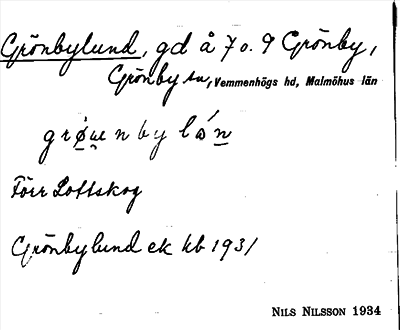 Grönbylund, gd å 7 o. 9 Grönby,
Grönby sn, Vemmenhögs hd, Malmöhus län
Förr Lottskog
Grönbylund ek kb 1931
NILS NILSSON 1934